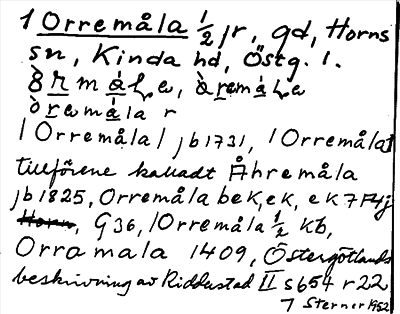 1 Orremåla 1/2 jr, gd, Horns
sn, Kinda hd, Östg. l.
òremála r
| Orremåla | jb 1731, | Orremåla |
tillförene kalladt Åhremåla
jb 1825, Orremåla beK, eK, eK 7F4j
Horn, G36, | Orremåla 1/2 Kb,
Orra mala 1409, Östergötlands
beskrivning av Ridderstad II s 654 r 22
J Sterner 1952